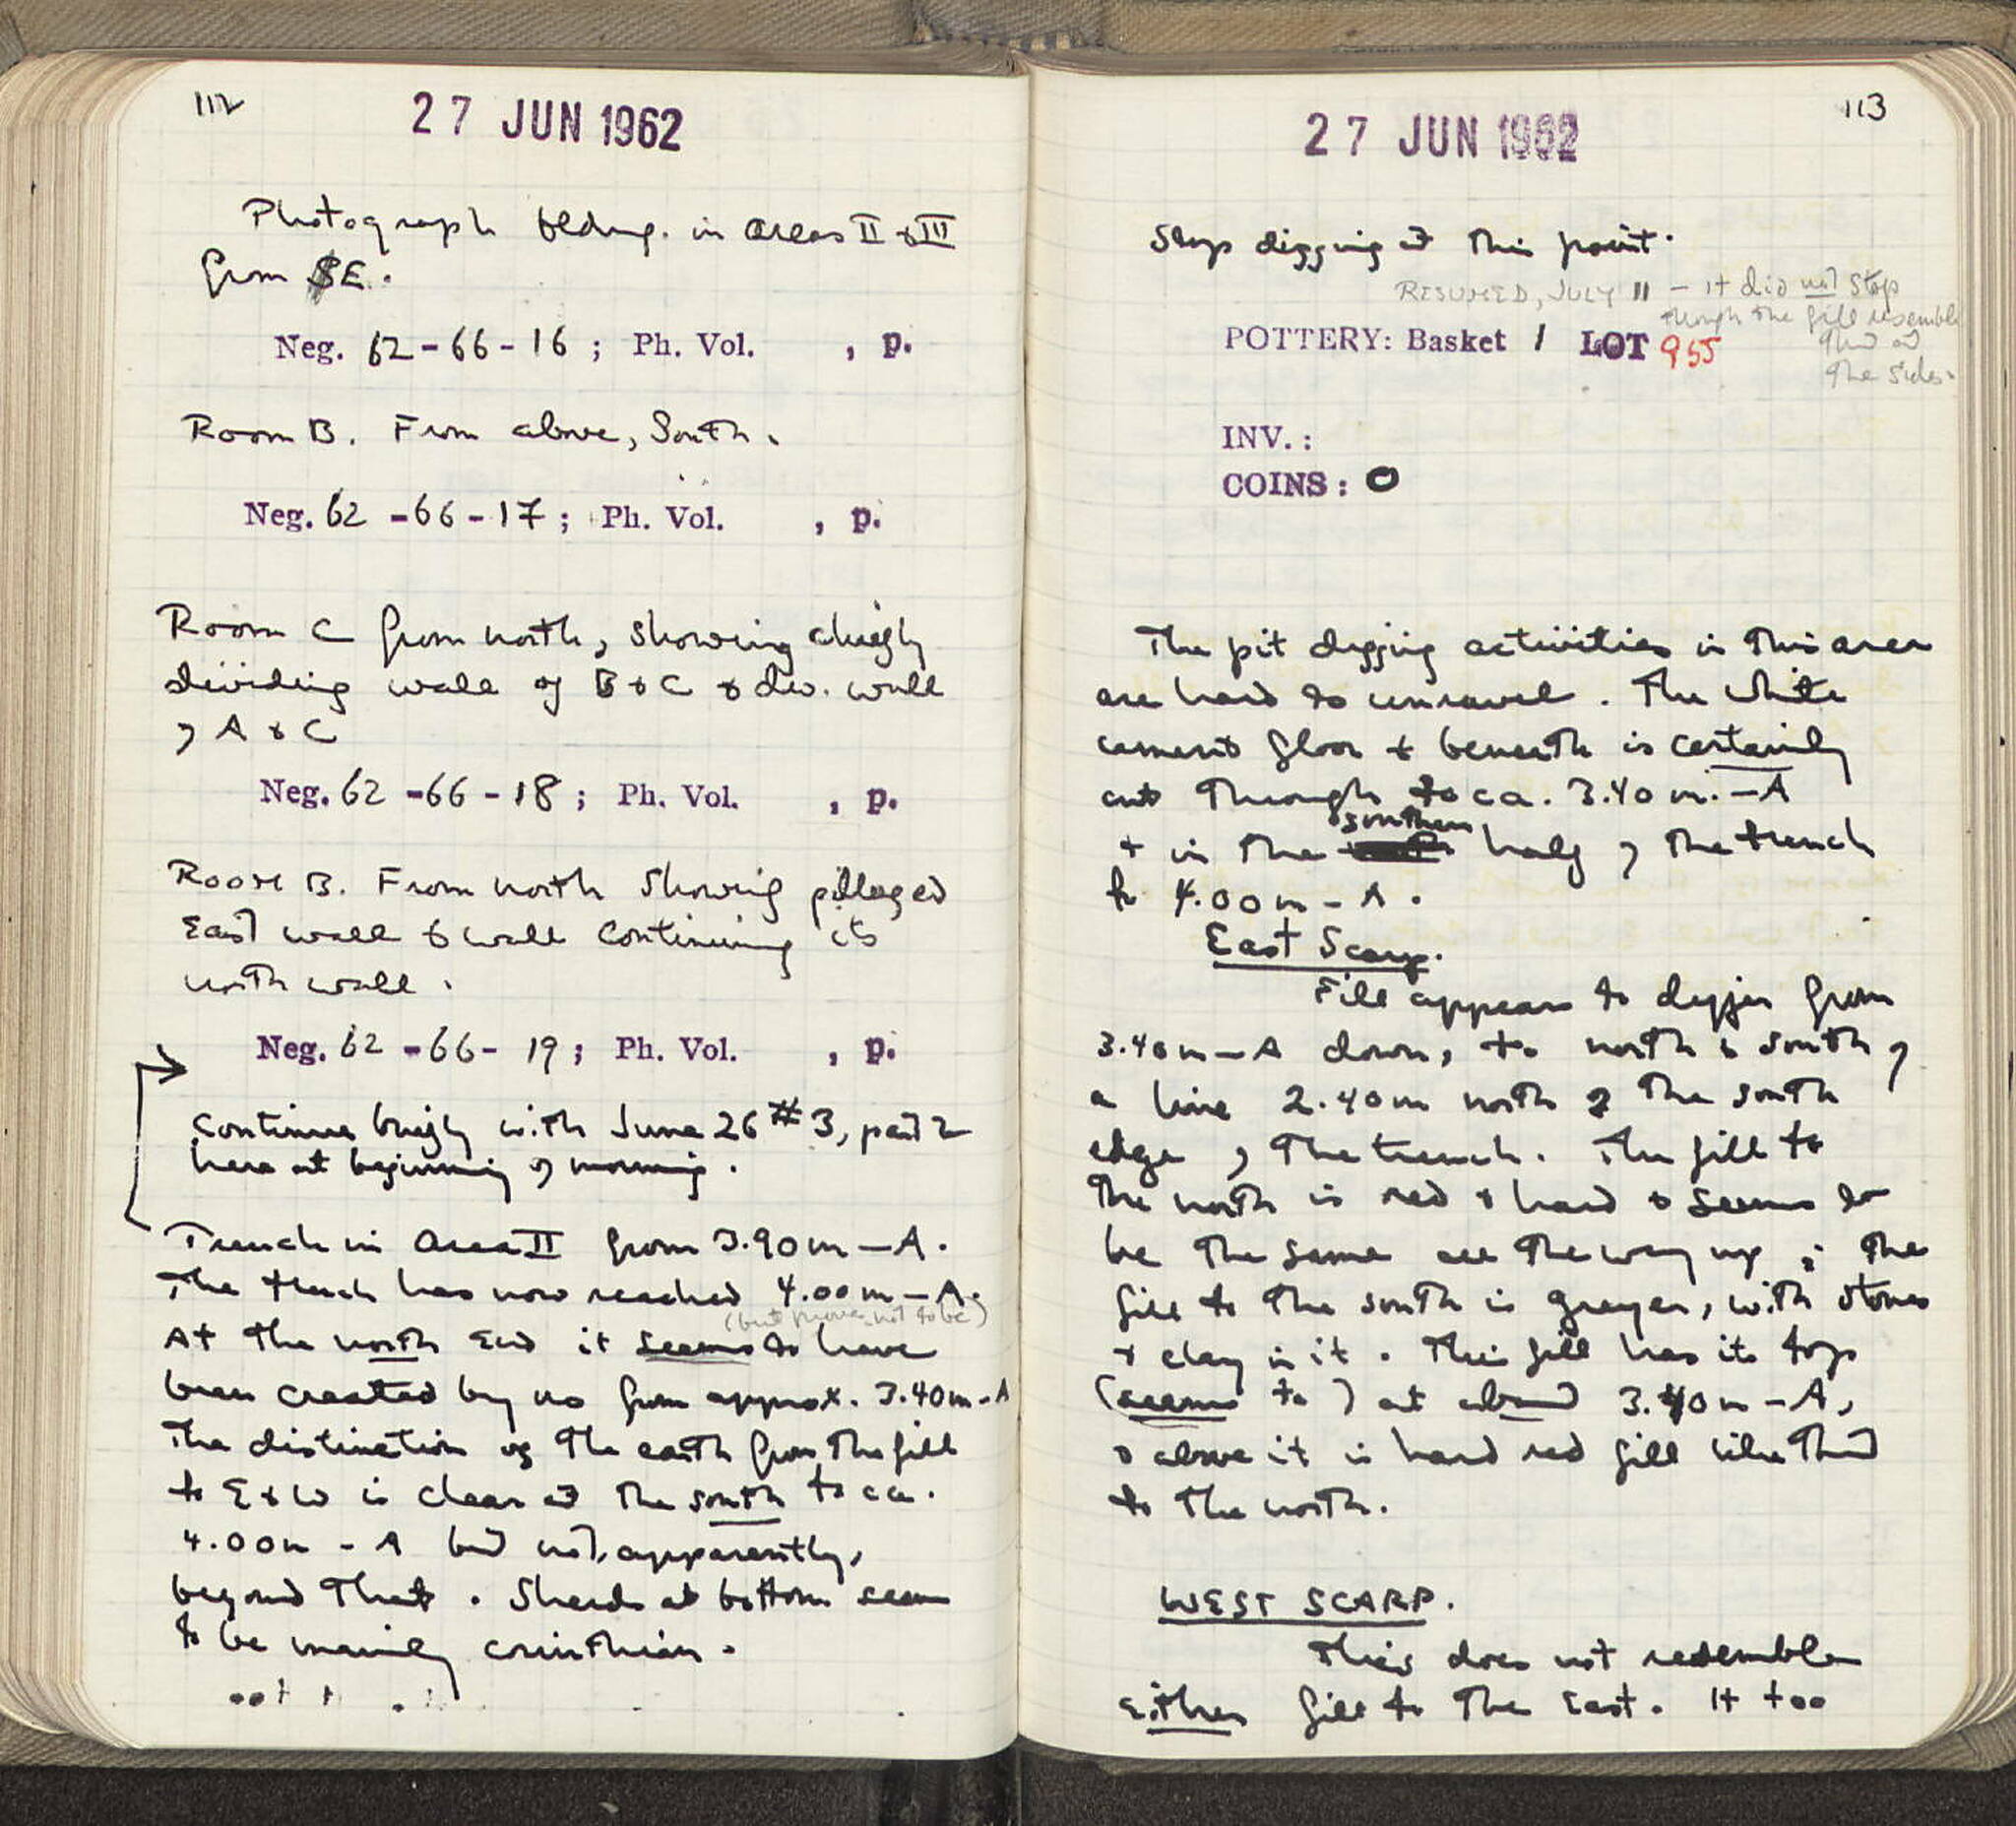 112
27 JUN 1962
Photograph bldng. in areas II & III
from SE.
Neg. 62-66-16; Ph. Vol. , p.
Room B. From above, South.
Neg. 62-66-17; Ph. Vol. , p.
Room C from north, showing chiefly
dividing wall of B & C & div. wall
of A & C
Neg. 62-66-18; Ph. Vol. , p.
Room B. From north showing pillaged
East wall & wall continuing its
north wall.
Neg. 62-66-19; Ph. Vol. , p.
Continue briefly with June 26 #3, part 2
here at beginning of morning.
Trench in Area II from 3.90m-A.
The trench has now reached 4.00m-A.
(but prove not to be)
At the north end it seems to have
been created by us from approx. 3.40m-A
The distinction of the earth from the fill
to E & W is clear at the south to ca.
4.00m - A but not, apparently,
beyond that. Sherds at bottom seem
to be mainly corinthian.
113
27 JUN 1962
Stop digging at this point.
RESUMED, JULY 11 - it did not stop
though the fill resembles
that at
the sides.
POTTERY: Basket 1 LOT 955
INV.:
COINS: 0
The pit digging activities in this area
are hard to unravel. The white
cement floor & beneath is certainly
cut through to ca. 3.40 m.-A
& in the southern half of the trench
to 4.00m-A.
East Scarp.
Fill appears to differ from
3.40m-A down, to north & south of
a line 2.40m north of the south
edge of the trench. The fill to
the north is red & hard & seems to
be the same all the way up; the
fill to the south is greyer, with stones
& clay in it. This fill has its top
(seems to) at about 3.40m-A,
& above it is hard red fill like that
to the north.
WEST SCARP.
This does not resemble
either fill to the East. It too